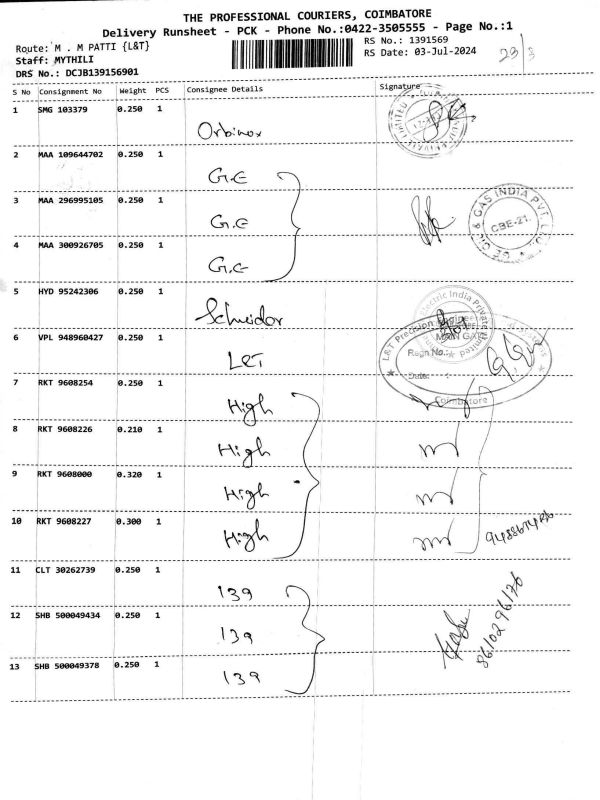 THE PROFESSIONAL COURIERS, COIMBATORE
Delivery Runsheet - PCK - Phone No.:0422-3505555 - Page No.:1
Route: M . M PATTI {L&T}
RS No.: 1391569
Staff: MYTHILI
RS Date: 03-Jul-2024
DRS No.: DCJB139156901
S No Consignment No Weight PCS Consignee Details Signature
1 SMG 103379 0.250 1 Orbinox
2 MAA 109644702 0.250 1 G.E
3 MAA 296995105 0.250 1 G.E
GAS INDIA PVT. LTD.
CBE-21.
4 MAA 300926705 0.250 1 G.E
5 HYD 95242306 0.250 1 Schneider
Electric India Private Limited
6 VPL 948960427 0.250 1 L&T
L&T Precision Engineering
MAIN GATE
Regn No.:
Date:
Coimbatore
7 RKT 9608254 0.250 1 High
8 RKT 9608226 0.210 1 High
9 RKT 9608000 0.320 1 High
10 RKT 9608227 0.300 1 High
11 CLT 30262739 0.250 1 139
12 SHB 500049434 0.250 1 139
8610296176
13 SHB 500049378 0.250 1 139